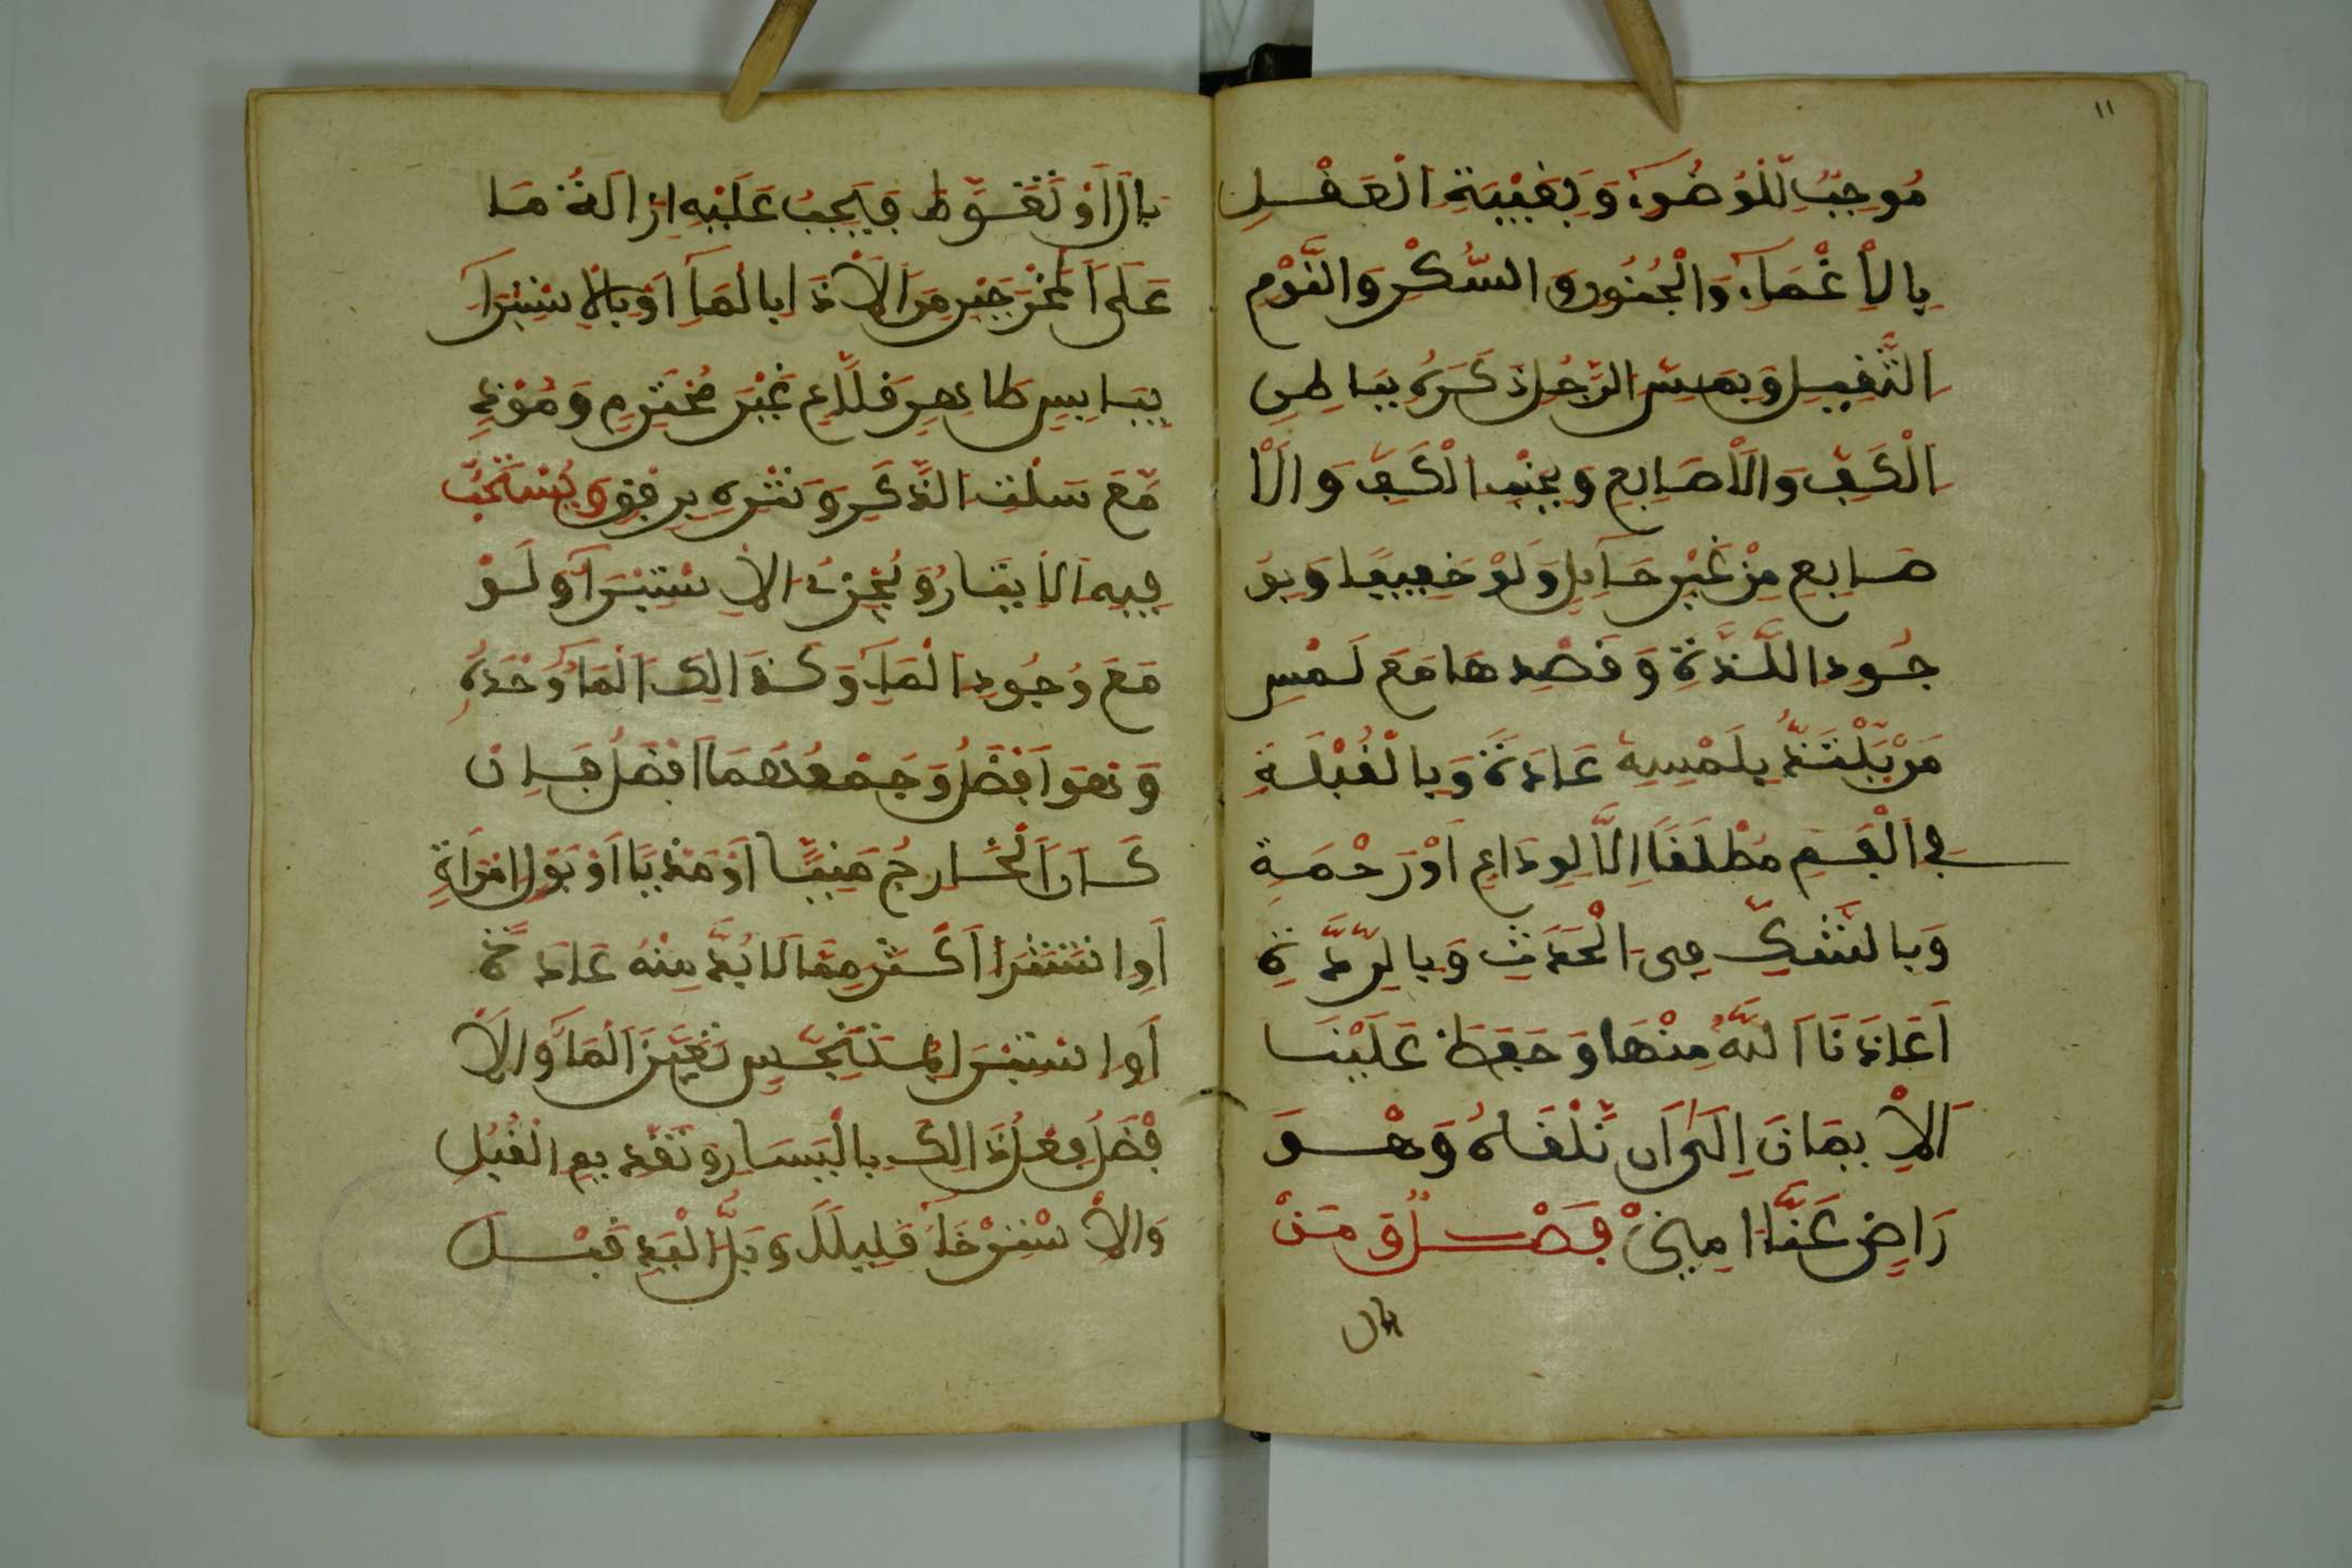 ١١
مُوجِبٌ لِلْوُضُوءِ وَبِغَيْبَةِ الْعَقْلِ
بِالْإِغْمَاءِ وَالْجُنُونِ وَالسُّكْرِ وَالنَّوْمِ
الثَّقِيلِ وَبِمَسِّ الرَّجُلِ ذَكَرَهُ بِبَاطِنِ
الْكَفِّ وَالْأَصَابِعِ وَبِجَنْبِ الْكَفِّ وَالْأَ
صَابِعِ مِنْ غَيْرِ حَائِلٍ وَلَوْ خَفِيفًا وَبِوُ
جُودِ اللَّذَّةِ وَقَصْدِهَا مَعَ لَمْسِ
مَنْ يَلْتَذُّ بِلَمْسِهِ عَادَةً وَبِالْقُبْلَةِ
فِي الْفَمِ مُطْلَقًا إِلَّا لِوَدَاعٍ أَوْ رَحْمَةٍ
وَبِالشَّكِّ فِي الْحَدَثِ وَبِالرِّدَّةِ
أَعَاذَنَا اللَّهُ مِنْهَا وَحَفِظَ عَلَيْنَا
الْإِيمَانَ إِلَى أَنْ نَلْقَاهُ وَهُوَ
رَاضٍ عَنَّا امِينْ فَصْلٌ وَمَنْ
بال
بَالَ أَوْ تَغَوَّطَ فَيَجِبُ عَلَيْهِ إِزَالَةُ مَا
عَلَى الْمَخْرَجَيْنِ مِنَ الْأَذَا بِالْمَاءِ أَوْ بِالْاِسْتِبْرَاءِ
بِيَابِسٍ طَاهِرٍ قَلَّاعٍ غَيْرَ مُحْتَرَمٍ وَمُوْذٍ
مَعَ سَلْتِ الذَّكَرِ وَنَتْرِهِ بِرِفْقٍ وَيُسْتَحَبُّ
فِيهِ الْإِيتَارُ وَيُجْزِئُ الْاِسْتِبْرَاءُ وَلَوْ
مَعَ وُجُودِ الْمَاءِ وَكَذَالِكَ الْمَاءُ وَحْدَهُ
وَهُوَ أَفْضَلُ وَجَمْعُهُمَا أَفْضَلُ فَإِنْ
كَانَ الْخَارِجُ مَنِيًّا أَوْ مَذْيًا أَوْ بَوْلَ امْرَأَةٍ
أَوِ انْتَشَرَ أَكْثَرَ مِمَّا لَا بُدَّ مِنْهُ عَادَةً
أَوِ اسْتَبْرَا بِمُتَنَجِّسٍ تَعَيَّنَ الْمَاءُ وَالْأَ
فْضَلُ فِعْلُ ذَالِكَ بِالْيَسَارِ وَتَقْدِيمِ الْقُبُلِ
وَالْاِسْتِرْخَاءُ قَلِيلًا وَبَلُّ الْيَدِ قَبْلَ